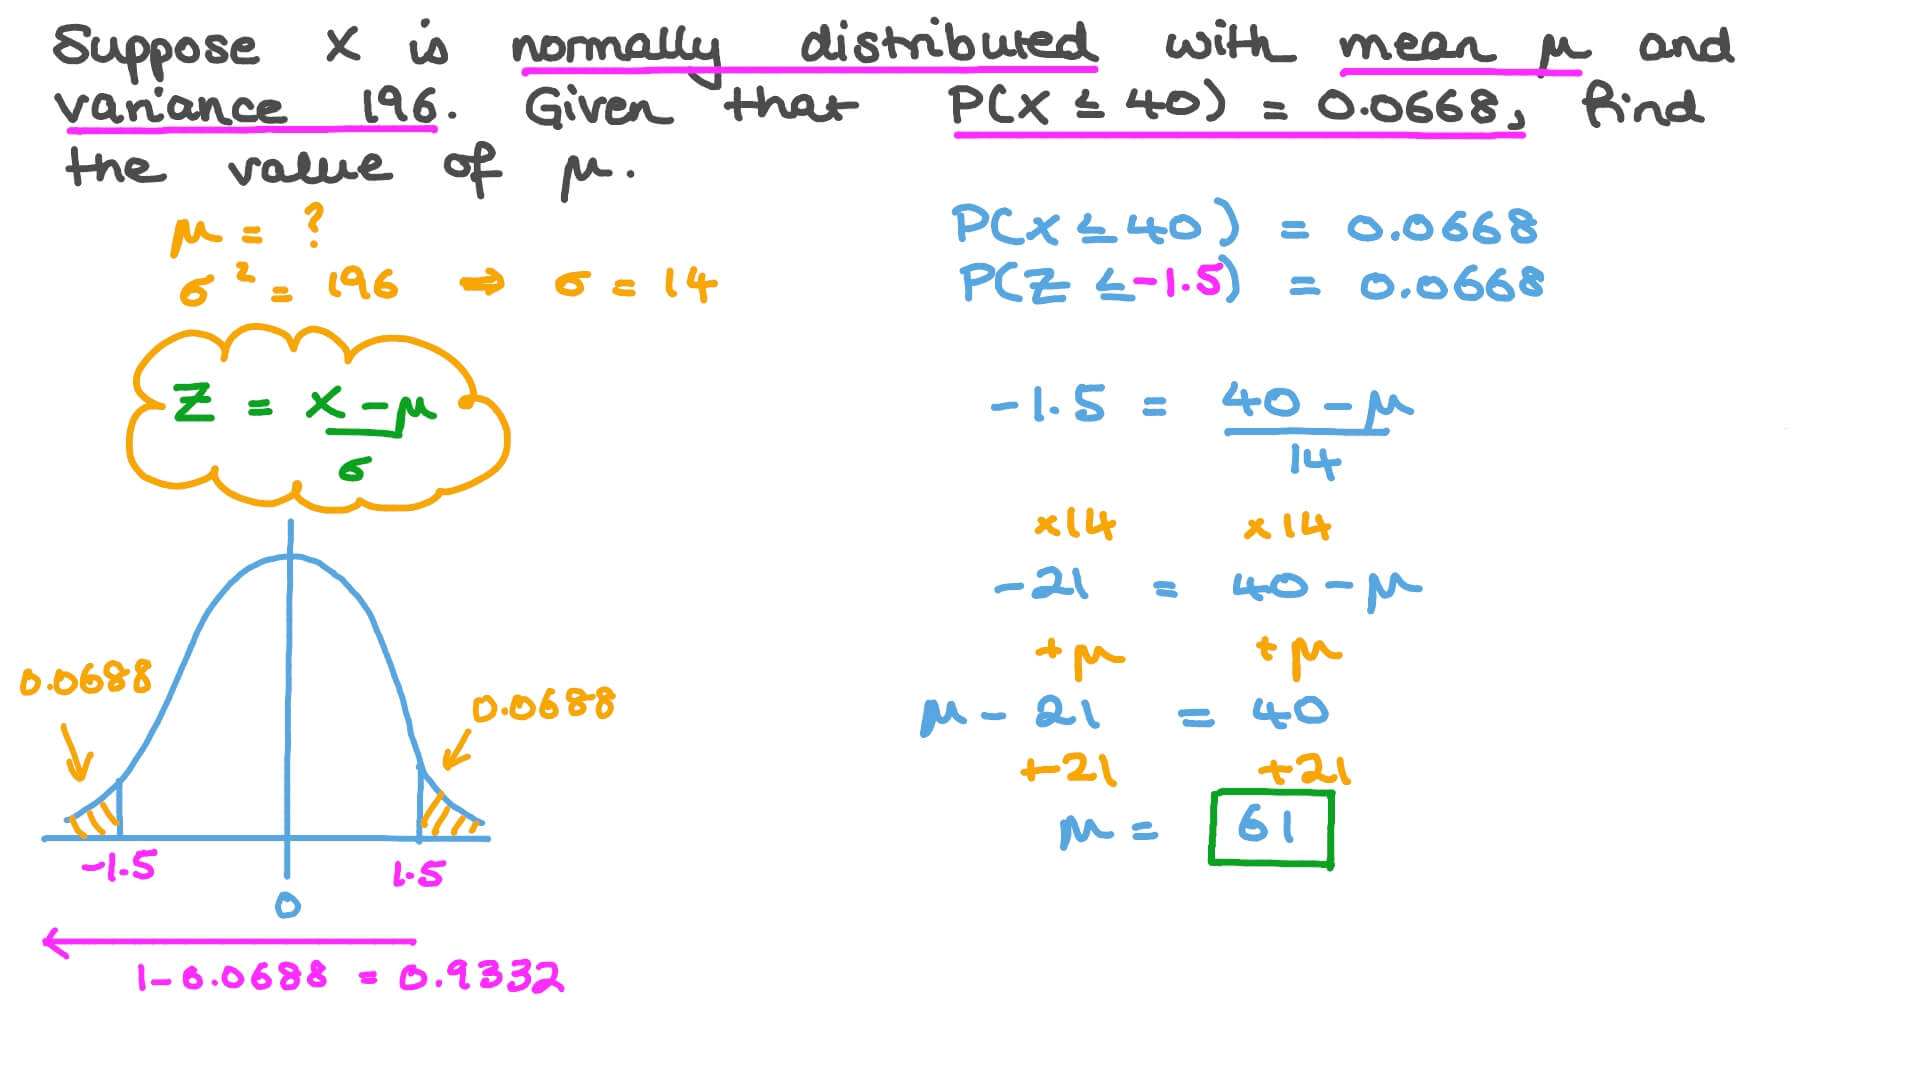 Suppose X is normally distributed with mean μ and
variance 196. Given that P(X ≤ 40) = 0.0668, find
the value of μ.
μ = ?
σ² = 196 ⇒ σ = 14
Z = X - μ
σ
0.0688
0.0688
-1.5
1.5
0
1 - 0.0688 = 0.9332
P(X ≤ 40) = 0.0668
P(Z ≤ -1.5) = 0.0668
-1.5 = 40 - μ
14
×14 ×14
-21 = 40 - μ
+μ +μ
μ - 21 = 40
+21 +21
μ = 61